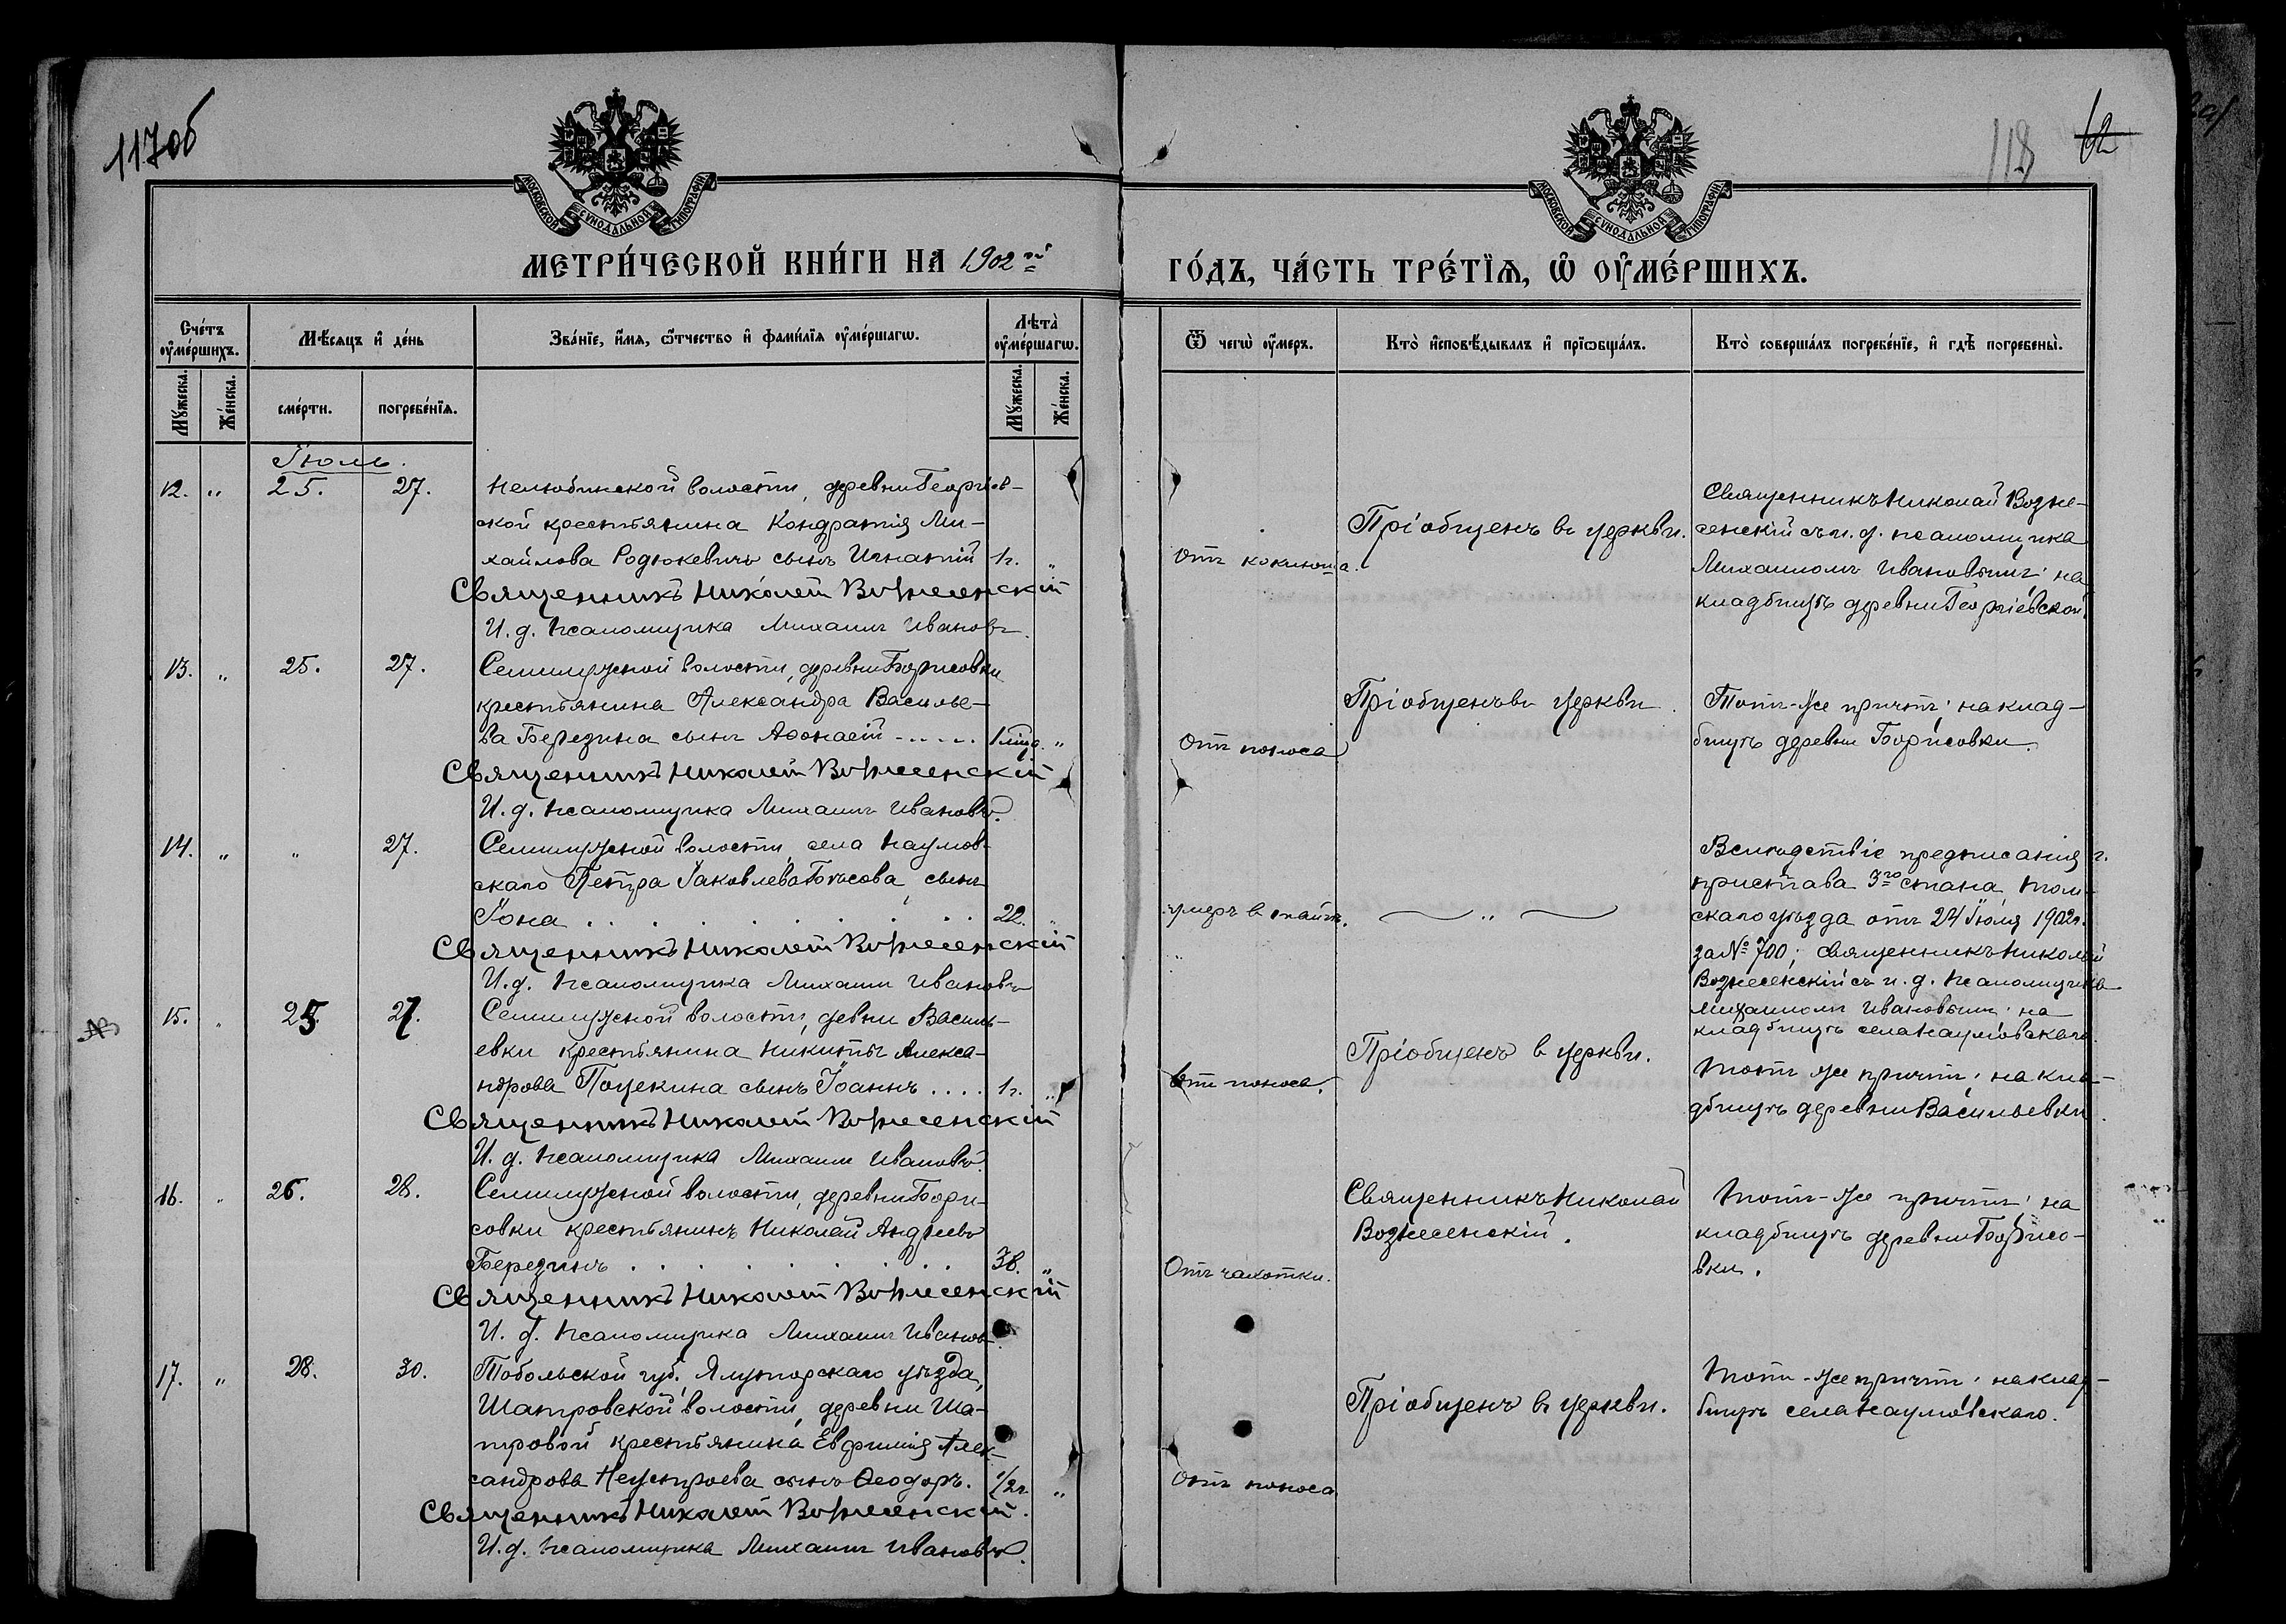 117об
118
62
МОСКОВСКОЙ СѴНОДАЛЬНОЙ ТИПОГРАФІИ
МОСКОВСКОЙ СѴНОДАЛЬНОЙ ТИПОГРАФІИ
МЕТРИ́ЧЕСКОЙ КНИ́ГИ НА 1902й
ГО́ДЪ, ЧА́СТЬ ТРЕ́ТІѦ, Ѡ҆ ОУ҆МЕ́РШИХЪ.
Сче́тъ оу҆ме́ршихъ.
Мꙋ́жеска.
Же́нска.
Мѣ́сяцъ и҆ де́нь
сме́рти.
погребе́нїѧ.
Зва́нїе, и҆́мѧ, ѻ҆́тчество и҆ фами́лїѧ оу҆ме́ршагѡ.
Лѣта̀ оу҆ме́ршагѡ.
Мꙋ́жеска.
Же́нска.
Ѿ чегѡ̀ оу҆́меръ.
Кто̀ и҆сповѣ́дывалъ и҆ прїѡбща́лъ.
Кто̀ соверша́лъ погребе́нїе, и҆ гдѣ̀ погребены̀.
Іюль.
12. „ 25. 27.
Нелюбинской волости, деревни Георгіев-
ской крестьянина Кондратія Ми-
хайлова Родюкевичъ сынъ Игнатій 1г. „
Священникъ Николай Вознесенскій
И. д. псаломщика Михаилъ Ивановъ.
отъ коклюша.
Пріобщенъ въ церкви.
Священникъ Николай Возне-
сенскій съ и. д. псаломщика
Михаиломъ Ивановымъ; на
кладбищѣ деревни Георгіевской.
13. „ 25. 27.
Семилужной волости, деревни Борисовки
крестьянина Александра Василье-
ва Березина сынъ Аѳонасій - . . . . 1 мца. „
Священникъ Николай Вознесенскій
И. д. псаломщика Михаилъ Ивановъ.
Отъ поноса
Пріобщенъ въ церкви.
Тотъ-же причтъ; на клад-
бищѣ деревни Борисовки.
14. „ „ 27.
Семилужной волости, села Наумов-
скаго Петра Іаковлева сынъ
Іона . . . . . . . . 22. „
Священникъ Николай Вознесенскій
И. д. псаломщика Михаилъ Ивановъ
умеръ в тайгѣ.
„
Вслѣдствіе предписанія г.
пристава 3го стана Том-
скаго уѣзда отъ 24 Іюля 1902г.
за № 700; священникъ Николай
Вознесенскій съ и. д. псаломщика
Михаиломъ Ивановымъ; на
кладбищѣ села Наумовскаго.
15. „ 25. 27.
Семилужной волости, девни Василь-
евки крестьянина Никиты Алекса-
ндрова сынъ Іоаннъ . . . . 1г. „
Священникъ Николай Вознесенскій
И. д. псаломщика Михаилъ Ивановъ.
Отъ поноса.
Пріобщенъ в церкви.
Тотъ же причтъ; на кла-
дбищѣ деревни Васильевки.
16. „ 26. 28.
Семилужной волости, деревни Бори-
совки крестьянинъ Николай Андреевъ
Березинъ . . . . . . . . 38. „
Священникъ Николай Вознесенскій
И. д. псаломщика Михаилъ Ивановъ
Отъ чахотки.
Священникъ Николай
Вознесенскій.
Тотъ-же причтъ; на
кладбищѣ деревни Борисо-
вки.
17. „ 28. 30.
Тобольской губ. Ялуторскаго уѣзда,
Шатровской волости, деревни Ша-
тровой крестьянина Евфимія Алек-
сандрова Неустроева сынъ Ѳеодоръ. 1/2г. „
Священникъ Николай Вознесенскій.
И. д. псаломщика Михаилъ Ивановъ.
Отъ поноса
Пріобщенъ въ церкви.
Тотъ-же причтъ; на клад-
бищѣ села Наумовскаго.